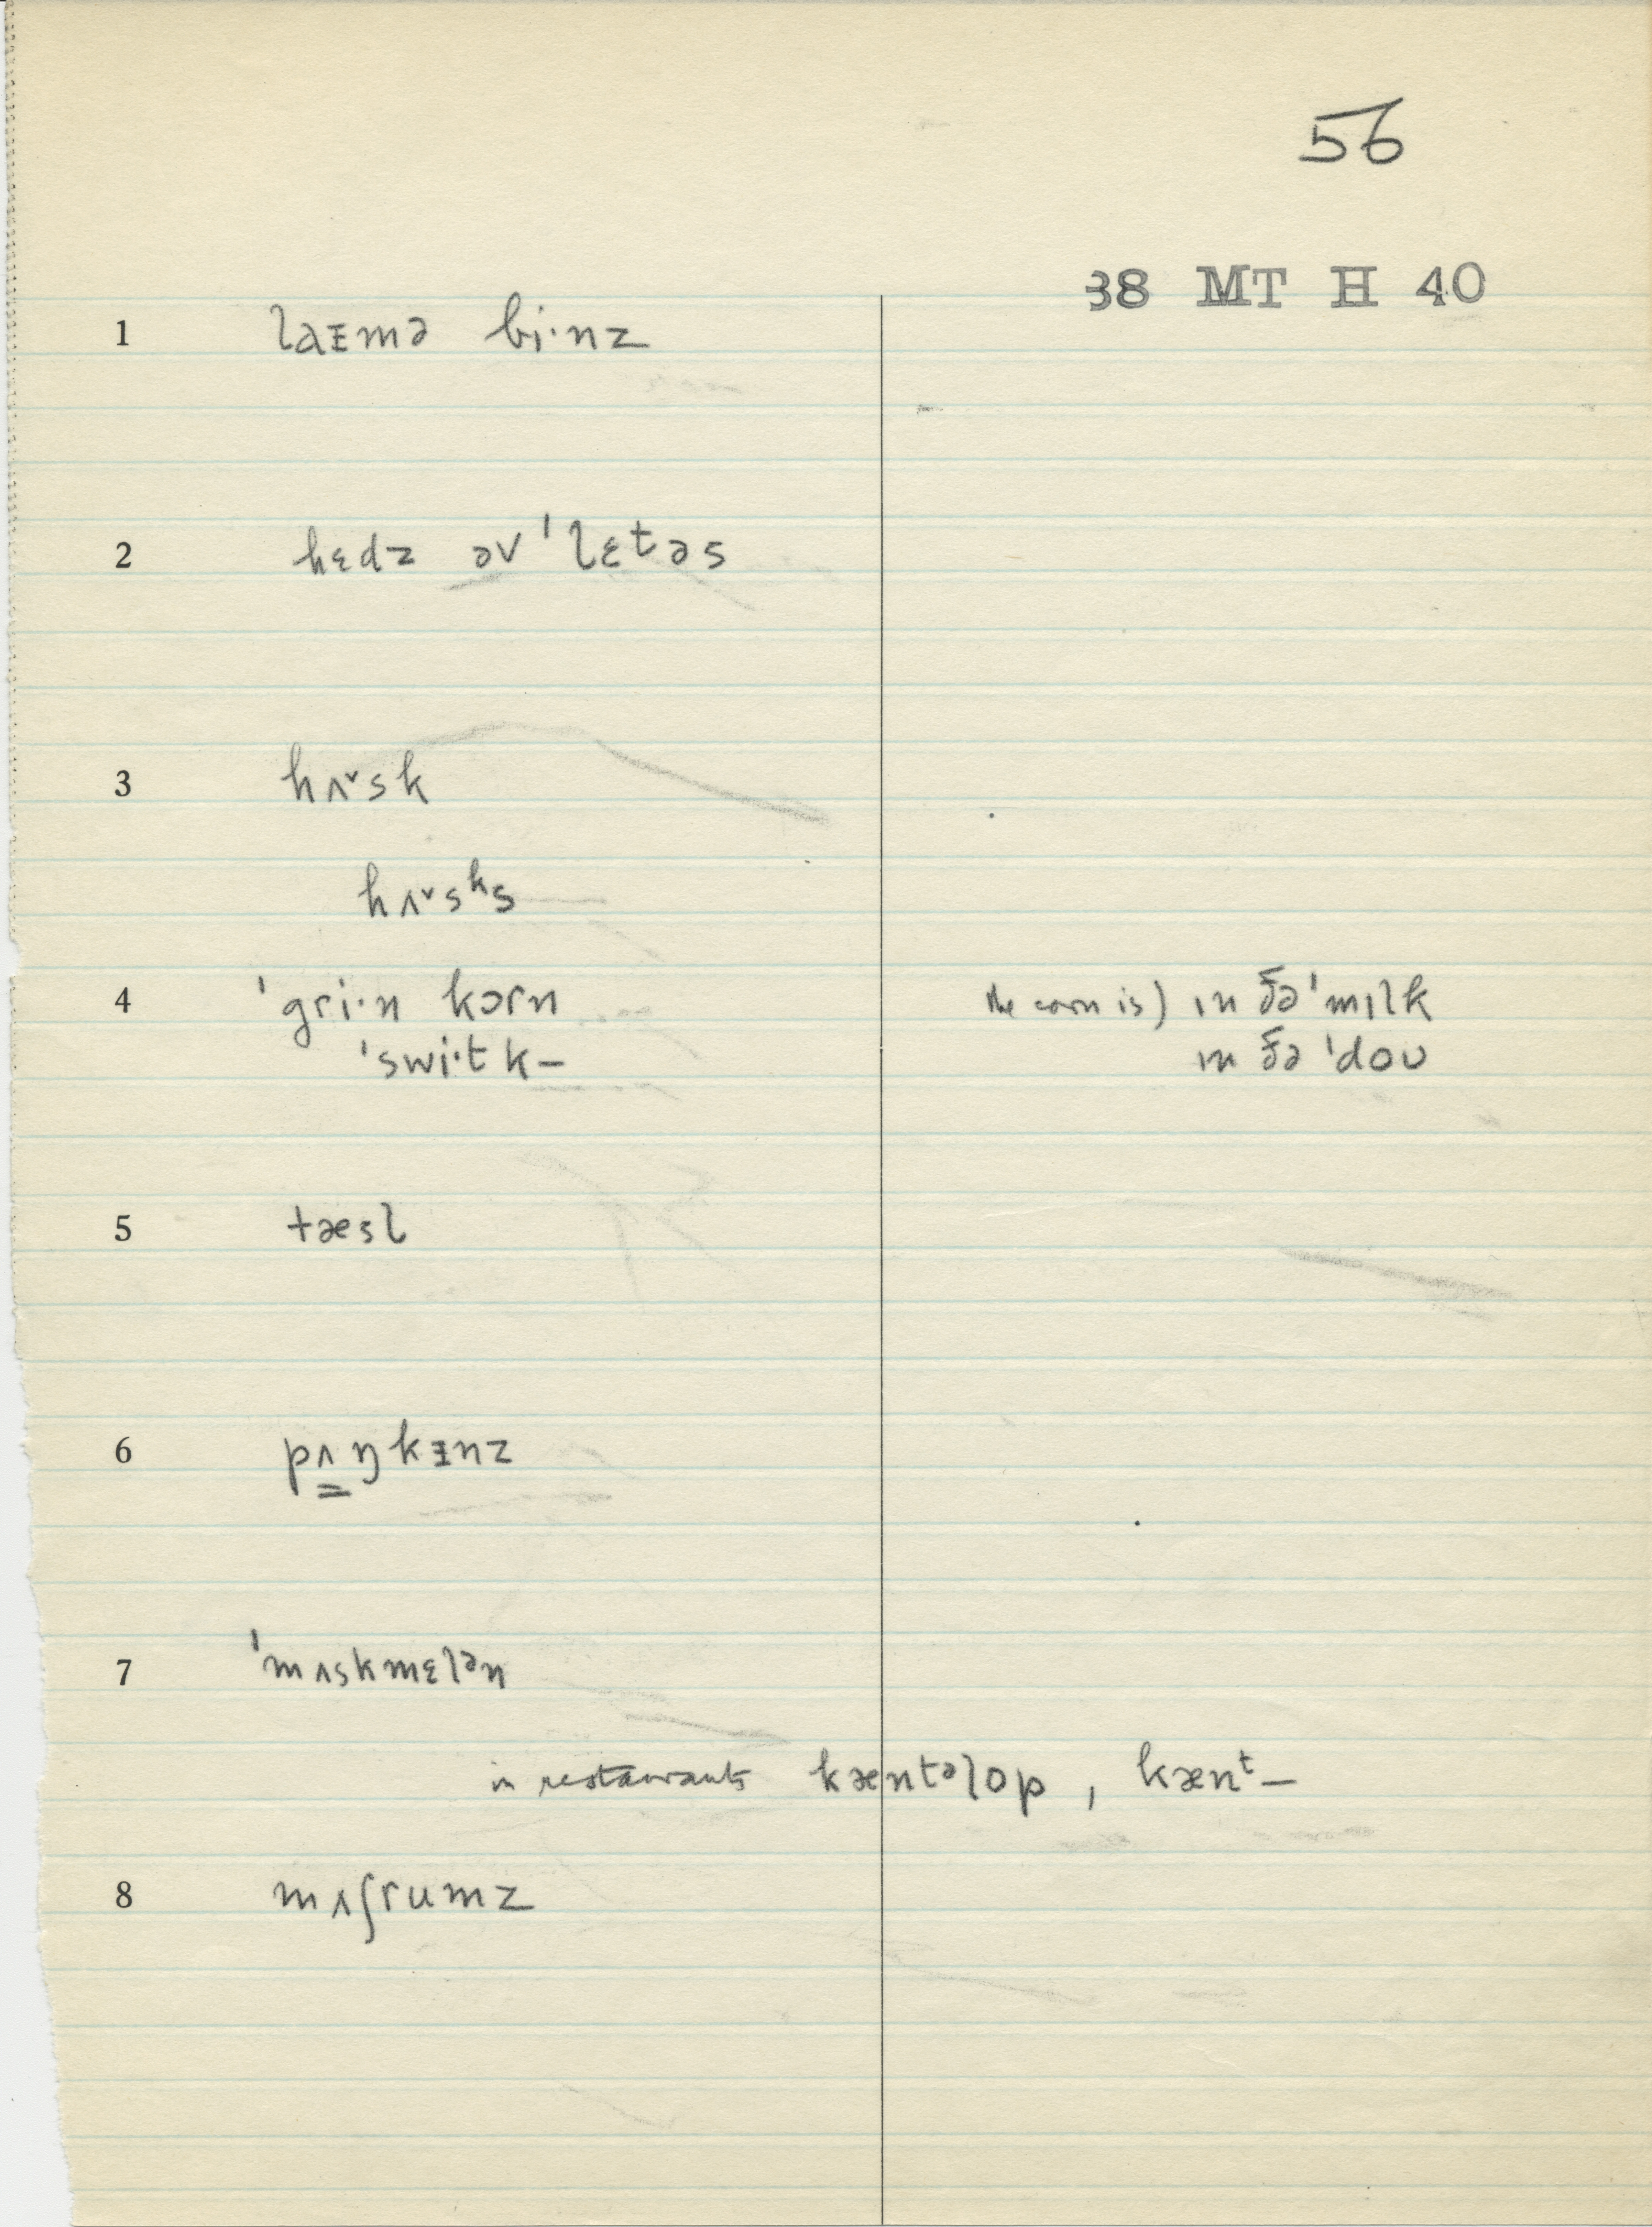 56
38 MT H 40
1 laɪmə bi·nz
2 hɛdz əv ˈlɛtəs
3 hʌ˅sk
hʌ˅sᵏs
4 ˈgri·n kɔrn the corn is) ɪn ðə ˈmɪlk
ˈswi·t k– ɪn ðə ˈdoʊ
5 tæsl
6 pʌ̳ŋkɪnz
7 ˈmʌskmɛlᵊn
in restaurants kæntᵊlop, kænᵗ–
8 mʌʃrumz